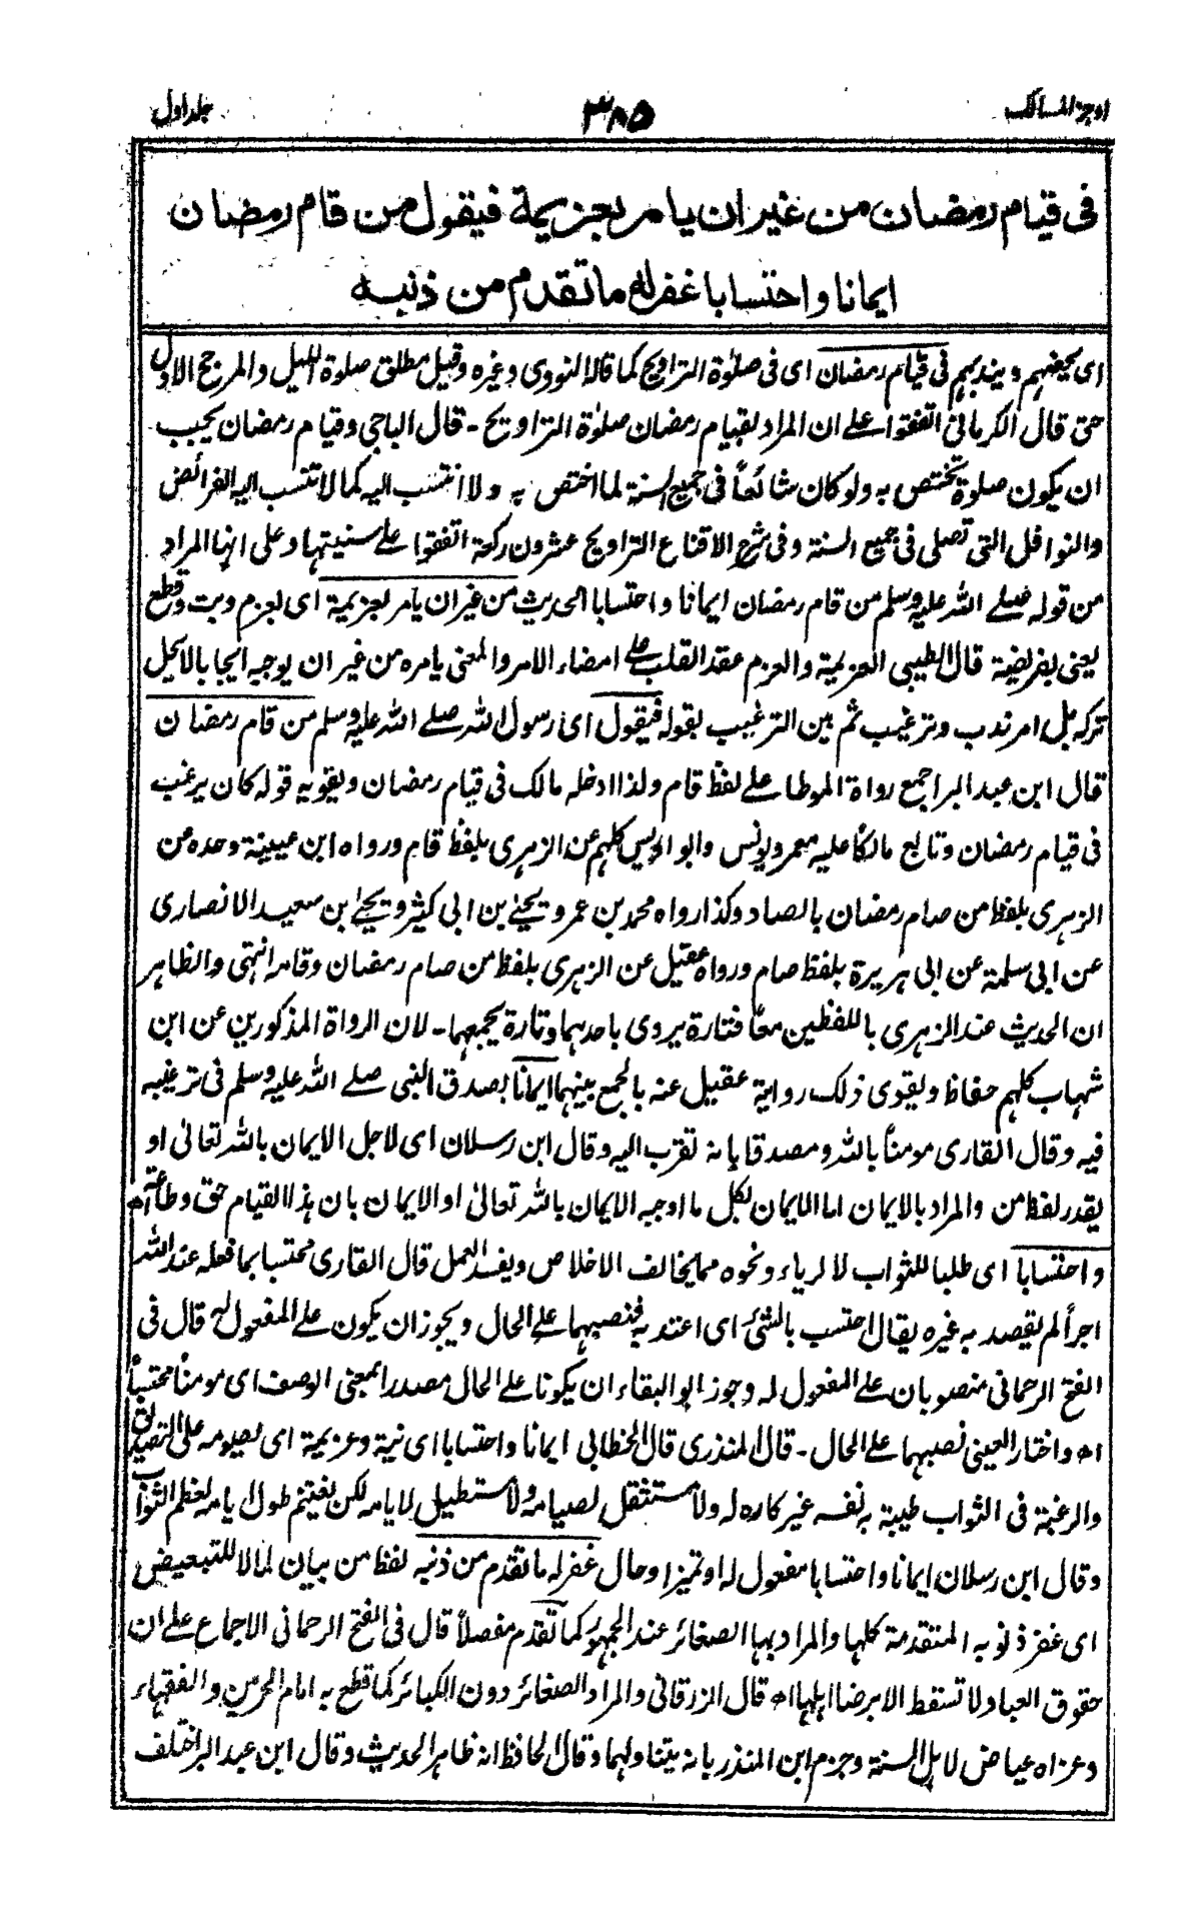 اوجز المسالك
٣٨٥
جلد اول
في قيام رمضان من غير ان يامر بعزيمة فيقول من قام رمضان
ايمانا واحتسابا غفر له ما تقدم من ذنبه
اى يحضهم ويندبهم فى قيام رمضان اى فى صلوٰة التراويح كما قاله النووى وغيره وقيل مطلق صلوة الليل والمرجح الاول
حتى قال الكرمانى اتفقوا على ان المراد بقيام رمضان صلوٰة التراويح - قال الباجى وقيام رمضان يجب
ان يكون صلوة تختص به ولو كان شائعاً فى جميع السنة لما اختص به ولا انتسب اليه كما لا تنتسب اليه الفرائض
والنوافل التى تصلى فى جميع السنة وفى شرح الاقناع التراويح عشرون ركعة اتفقوا على سنيتها وعلى انها المراد
من قوله صلے الله عليه وسلم من قام رمضان ايمانا واحتسابا الحديث من غير ان يامر بعزيمة اى بعزم وبت وقطع
يعنى بفريضة قال الطيبى العزيمة والعزم عقد القلب على امضاء الامر والمعنى يامره من غير ان يوجبه ايجابا لا يحل
تركه بل امر ندب وترغيب ثم بين الترغيب بقوله فيقول اى رسول الله صلے الله عليه وسلم من قام رمضان
قال ابن عبد البر اجمع رواة الموطا على لفظ قام ولذا ادخله مالك فى قيام رمضان ويقويه قوله كان يرغب
فى قيام رمضان وتابع مالكا عليه معمر ويونس وابو اويس كلهم عن الزهرى بلفظ قام ورواه ابن عيينة وحده عن
الزهرى بلفظ من صام رمضان بالصاد وكذا رواه محمد بن عمرو ويحيىٰ بن ابى كثير ويحيىٰ ابن سعيد الانصارى
عن ابى سلمة عن ابى هريرة بلفظ صام ورواه عقيل عن الزهرى بلفظ من صام رمضان وقامه انتهى والظاهر
ان الحديث عند الزهرى باللفظين معاً فتارة يروى باحدهما وتارة يجمعهما - لان الرواة المذكورين عن ابن
شهاب كلهم حفاظ ويقوى ذلك رواية عقيل عنه بالجمع بينهما ايمانا بصدق النبى صلے الله عليه وسلم فى ترغيبه
فيه وقال القارى مومناً بالله ومصدقا بانه تقرب اليه وقال ابن رسلان اى لاجل الايمان بالله تعالىٰ او
يقدر لفظ من والمراد بالايمان اما الايمان بكل ما اوجبه الايمان بالله تعالىٰ او الايمان بان هذا القيام حق وطاعة اه
واحتسابا اى طلبا للثواب لا لرياء ونحوه مما يخالف الاخلاص ويفسد العمل قال القارى محتسبا بما فعله عند الله
اجراً لم يقصد به غيره يقال احتسب بالشئ اى اعتد به فنصبهما على الحال ويجوز ان يكون على المفعول له قال فى
الفتح الرحمانى منصوبان على المفعول له وجوز ابو البقاء ان يكونا على الحال مصدرا بمعنى الوصف اى مومناً محتسباً
اه واختار العينى نصبهما على الحال - قال المنذرى قال الخطابى ايمانا واحتسابا اى نية وعزيمة اى يصومه على التصديق
والرغبة فى الثواب طيبة به نفسه غير كاره له ولا مستثقل لصيامه ولا مستطيل لايامه لكن يغتنم طول ايامه لعظم الثواب
وقال ابن رسلان ايمانا واحتسابا مفعول له او تميز او حال غفر له ما تقدم من ذنبه لفظ من بيان لما لا للتبعيض
اى غفر ذنوبه المتقدمة كلها والمراد بها الصغائر عند الجمهور كما تقدم مفصلاً قال فى الفتح الرحمانى الاجماع على ان
حقوق العباد لا تسقط الا برضا اهلها اه قال الزرقانى والمراد الصغائر دون الكبائر كما قطع به امام الحرمين والفقهاء
وعزاه عياض لاهل السنة وجزم ابن المنذر بانه يتناولهما وقال الحافظ انه ظاهر الحديث وقال ابن عبد البر اختلف